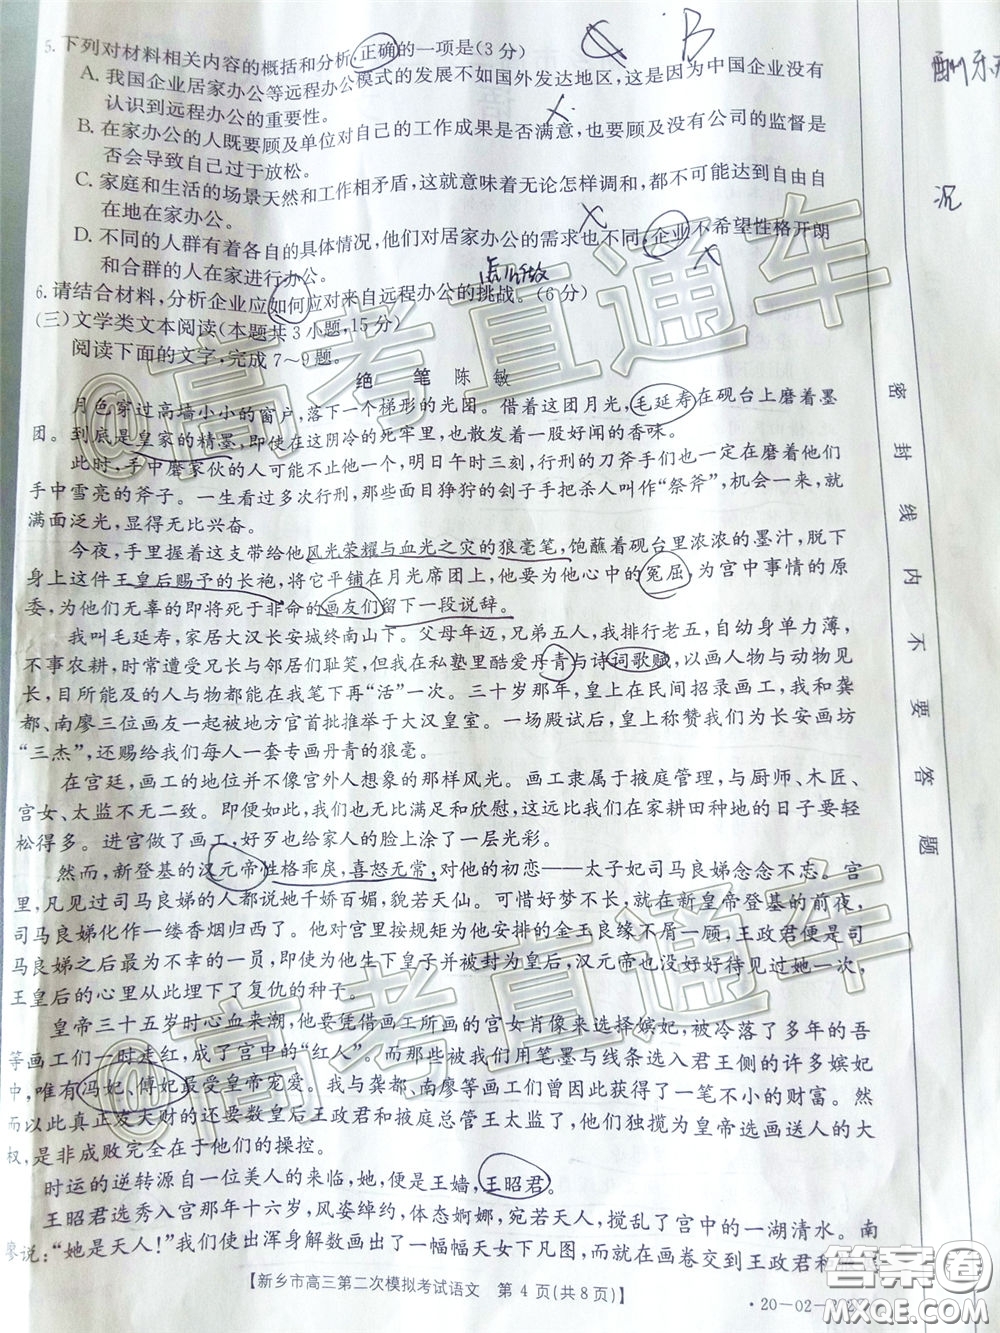 5.下列对材料相关内容的概括和分析,正确的一项是(3分)
B
A.我国企业居家办公等远程办公模式的发展不如国外发达地区,这是因为中国企业没有
认识到远程办公的重要性。
B.在家办公的人既要顾及单位对自己的工作成果是否满意,也要顾及没有公司的监督是
否会导致自己过于放松。
C.家庭和生活的场景天然和工作相矛盾,这就意味着无论怎样调和,都不可能达到自由自
在地在家办公。
D.不同的人群有着各自的具体情况,他们对居家办公的需求也不同,企业不希望性格开朗
和合群的人在家进行办公。
6.请结合材料,分析企业应如何应对来自远程办公的挑战。(6分)
(三)文学类文本阅读(本题共3小题,15分)
阅读下面的文字,完成7~9题。
绝 笔 陈 敏
月色穿过高墙小小的窗户,落下一个梯形的光团。借着这团月光,毛延寿在砚台上磨着墨
团。到底是皇家的精墨,即使在这阴冷的死牢里,也散发着一股好闻的香味。
此时,手中磨家伙的人可能不止他一个,明日午时三刻,行刑的刀斧手们一定也在磨着他们
手中雪亮的斧子。一生看过多次行刑,那些面目狰狞的刽子手把杀人叫作“祭斧”,机会一来,就
满面泛光,显得无比兴奋。
今夜,手里握着这支带给他风光荣耀与血光之灾的狼毫笔,饱蘸着砚台里浓浓的墨汁,脱下
身上这件王皇后赐予的长袍,将它平铺在月光席团上,他要为他心中的冤屈,为宫中事情的原
委,为他们无辜的即将死于非命的画友们留下一段说辞。
我叫毛延寿,家居大汉长安城终南山下。父母年迈,兄弟五人,我排行老五,自幼身单力薄,
不事农耕,时常遭受兄长与邻居们耻笑,但我在私塾里酷爱丹青与诗词歌赋,以画人物与动物见
长,目所能及的人与物都能在我笔下再“活”一次。三十岁那年,皇上在民间招录画工,我和龚
都、南廖三位画友一起被地方官首批推举于大汉皇室。一场殿试后,皇上称赞我们为长安画坊
“三杰”,还赐给我们每人一套专画丹青的狼毫。
在宫廷,画工的地位并不像宫外人想象的那样风光。画工隶属于掖庭管理,与厨师、木匠、
宫女、太监不无二致。即便如此,我们也无比满足和欣慰,毕竟这比我们在家耕田种地的日子要轻
松得多。进宫做了画工,好歹也给家人的脸上涂了一层光彩。
然而,新登基的汉元帝性格乖戾,喜怒无常,对他的初恋——太子妃司马良娣念念不忘。宫
里,凡见过司马良娣的人都说她千娇百媚,貌若天仙。可惜好梦不长,就在新皇帝登基的前夜,
司马良娣化作一缕香烟归西了。他对宫里按规矩为他安排的金玉良缘不屑一顾,王政君便是司
马良娣之后最为不幸的一员,即使为他生下皇子并被封为皇后,汉元帝也没好好待见过她一次,
王皇后的心里从此埋下了复仇的种子。
皇帝三十五岁时心血来潮,他要凭借画工所画的宫女肖像来选择嫔妃,被冷落了多年的吾
等画工们一时走红,成了宫中的“红人”。而那些被我们用笔墨与线条选入君王侧的许多嫔妃
中,唯有冯妃、傅妃最受皇帝宠爱。我与龚都、南廖等画工们曾因此获得了一笔不小的财富。然
而以此真正发大财的还要数皇后王政君和掖庭总管王太监了,他们独揽为皇帝选画送人的大
权,是非成败完全在于他们的操控。
时运的逆转源自一位美人的来临,她,便是王嫱,王昭君。
王昭君选秀入宫那年十六岁,风姿绰约,体态婀娜,宛若天人,搅乱了宫中的一湖清水。南
廖说:“她是天人!”我们使出浑身解数画出了一幅幅天女下凡图,然而在画卷交到王政君和
【新乡市高三第二次模拟考试语文 第 4 页(共 8 页)】
密 封 线 内 不 要 答 题
况
@高考直通车
@高考直通车
答案